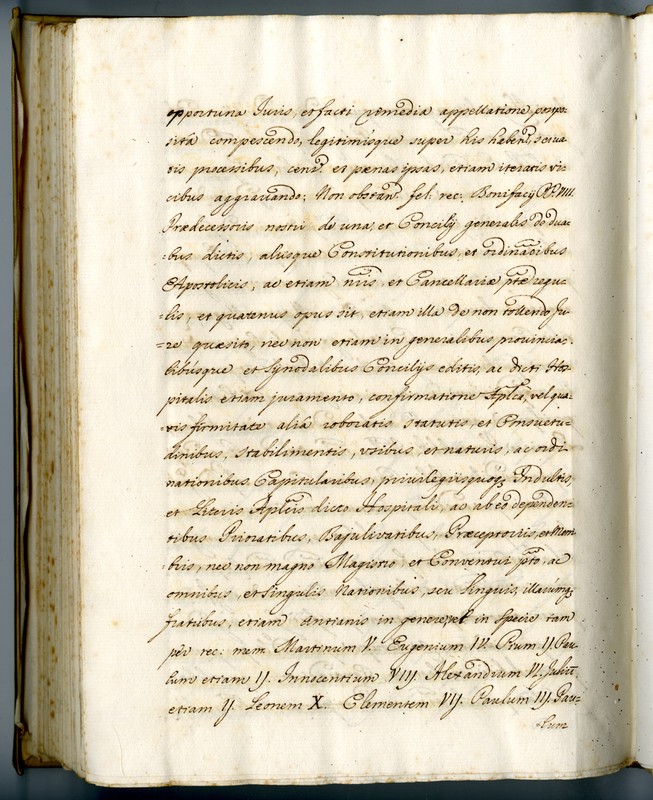 opportuna Juris, et facti remedia appellatione postpo-
sita compescendo, legitimisque super his haben. serua-
tis processibus, cens. et pœnas ipsas, etiam iteratis vi-
cibus aggrauando; Non obstan. fel: rec: Bonifacij PP. VIII.
Prædecessoris nostri de una, et Concilij generalis de dua-
=bus dictis, alijsque Constitutionibus, et ordinãcibus
Apostolicis, ac etiam nris, et Cancellariæ ptæ regu-
=lis, et quatenus opus sit, etiam illa de non tollendo Ju-
=re quæsito, nec non etiam in generalibus prouincia-
libusque et Synodalibus Concilijs editis, ac dicti Hos-
pitalis etiam juramento, confirmatione Aplca, vel qua-
=uis firmitate alia roboratis statutis, et Consuetu-
dinibus, stabilimentis, vsibus, et naturis, ac ordi-
nationibus Capitularibus, priuilegijsquoq; Indultis,
et Literis Aplcis dicto Hospitali, ac ab eo dependen-
tibus Prioratibus, Bajuliuatibus, Præceptorijs, et Mem-
bris, nec non magno Magistro, et Conventui pto, ac
omnibus, et singulis Nationibus, seu linguis, illarumq;
fratribus, etiam Antianis in genere, vel in specie tam
per rec: mem: Martinum V. Eugenium IV. Pium IJ Pau-
lum etiam IJ. Innocentium VIIJ Alexandrum VI. Juliũ
etiam IJ. Leonem X. Clementem VIJ. Paulum IIJ. Pau=
lum